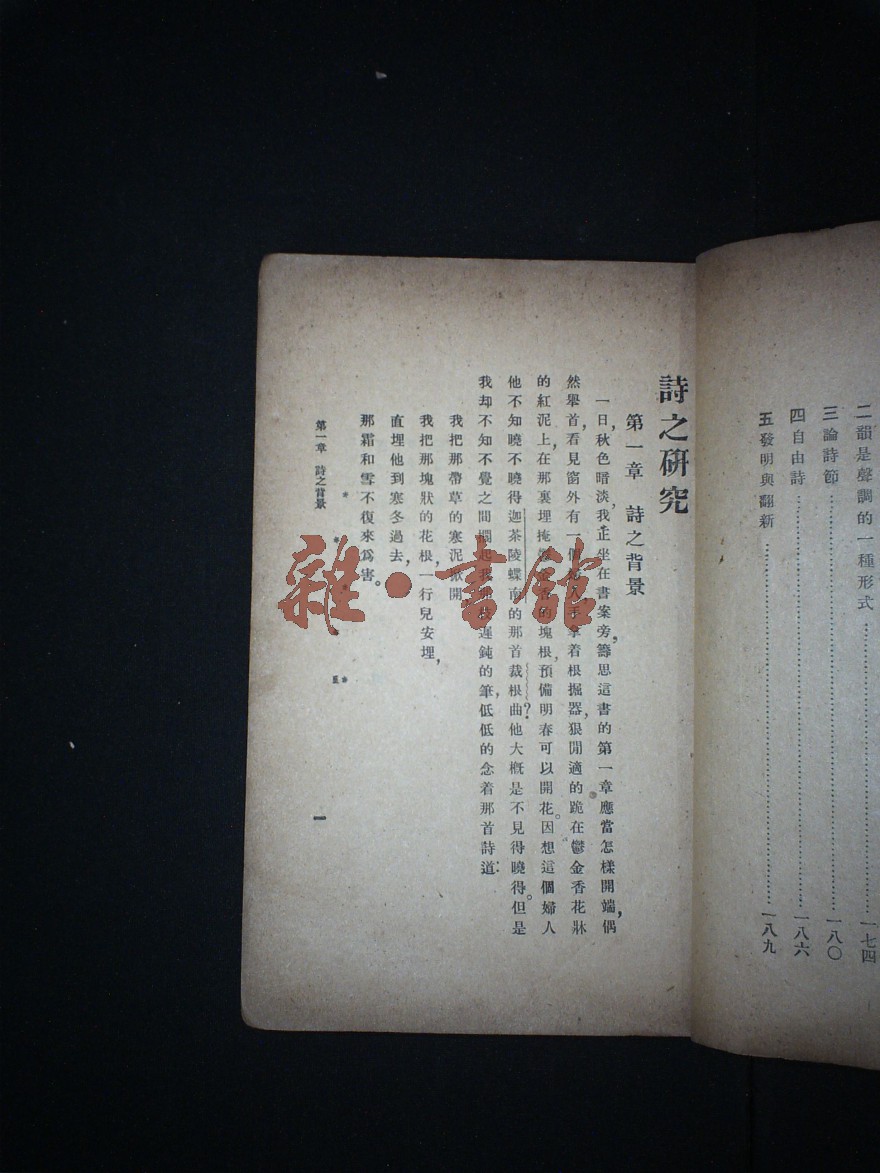 二韻是聲調的一種形式…………一七四
三論詩節…………一八〇
四自由詩…………一八六
五發明與翻新…………一八九
詩之研究
第一章 詩之背景
一日，秋色暗淡，我正坐在書案旁，籌思這書的第一章應當怎樣開端，偶
然舉首，看見窗外有一個婦人，手拿着根掘器，狠閒適的跪在鬱金香花牀
的紅泥上，在那裏埋掩鬱金香的塊根，預備明春可以開花。因想這個婦人
他不知曉不曉得迦茶陵蝶南的那首裁根曲？他大概是不見得曉得。但是
我却不知不覺之間擱起我那枝遲鈍的筆，低低的念着那首詩道：
我把那帶草的寒泥掀開
我把那塊狀的花根，一行兒安埋，
直埋他到寒冬過去，
那霜和雪不復來爲害。
第一章 詩之背景
一
雜·書館